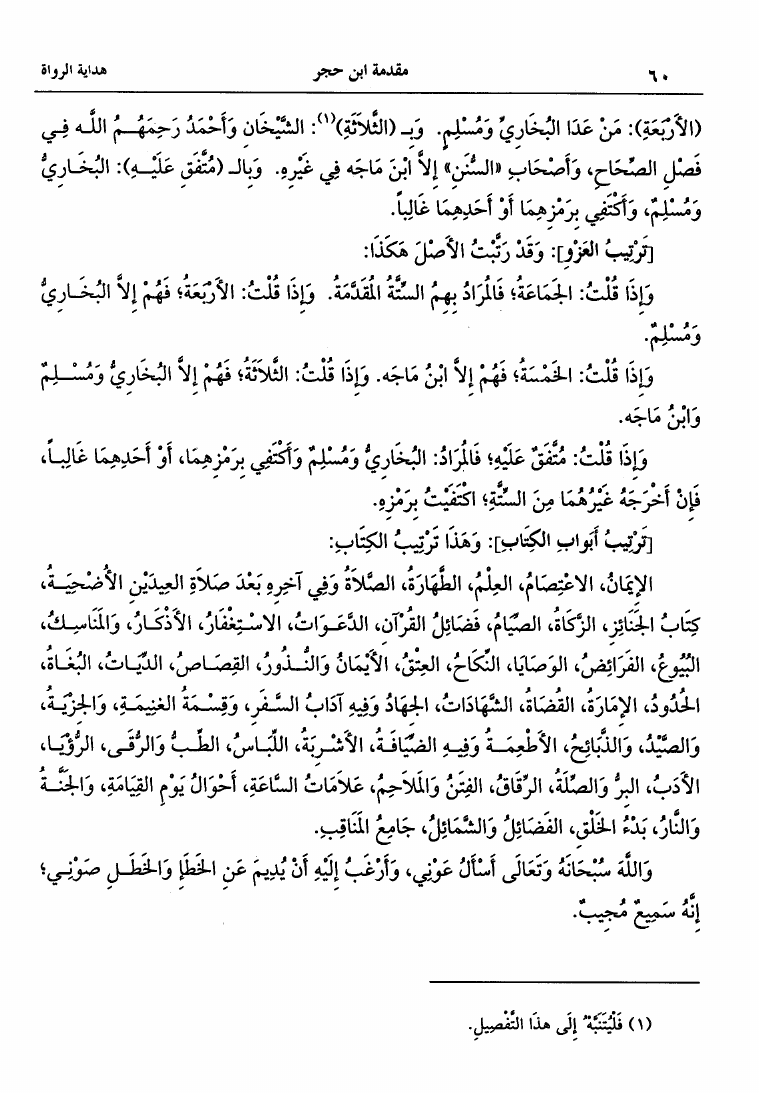 ٦٠ مقدمة ابن حجر هداية الرواة
(الأَرْبَعَةِ): مَنْ عَدَا البُخَارِيِّ وَمُسْلِمٍ. وَبِـ (الثَّلاَثَةِ)(١): الشَّيْخَان وَأَحْمَدُ رَحِمَهُـمُ اللَّـه فِـي
فَصْلِ الصِّحَاحِ، وَأَصْحَابِ «السُّنَنِ» إِلاَّ ابْنَ مَاجَه فِي غَيْرِهِ. وَبِالـ (مُتَّفَقِ عَلَيْـهِ): البُخَـارِيُّ
وَمُسْلِمٌ، وَأَكْتَفِي بِرَمْزِهِمَا أَوْ أَحَدِهِمَا غَالِباً.
[تَرْتِيبُ العَزْوِ]: وَقَدْ رَتَّبْتُ الأَصْلَ هَكَذَا:
وَإِذَا قُلْتُ: الجَمَاعَةُ؛ فَالمُرَادُ بِهِمُ السِّتَّةُ المُقَدَّمَةُ. وَإِذَا قُلْتُ: الأَرْبَعَةُ؛ فَهُمْ إِلاَّ البُخَـارِيُّ
وَمُسْلِمٌ.
وَإِذَا قُلْتُ: الخَمْسَةُ؛ فَهُمْ إِلاَّ ابْنُ مَاجَه. وَإِذَا قُلْتُ: الثَّلاَثَةُ؛ فَهُمْ إِلاَّ البُخَارِيُّ وَمُسْـلِمٌ
وَابْنُ مَاجَه.
وَإِذَا قُلْتُ: مُتَّفَقٌ عَلَيْهِ؛ فَالمُرَادُ: البُخَارِيُّ وَمُسْلِمٌ وَأَكْتَفِي بِرَمْزِهِمَا، أَوْ أَحَدِهِمَا غَالِبـاً،
فَإِنْ أَخْرَجَهُ غَيْرُهُمَا مِنَ السِّتَّةِ؛ اكْتَفَيْتُ بِرَمْزِهِ.
[تَرْتِيبُ أَبْوَابِ الكِتَابِ]: وَهَذَا تَرْتِيبُ الكِتَابِ:
الإِيمَانُ، الاعْتِصَامُ، العِلْمُ، الطَّهَارَةُ، الصَّلاَةُ وَفِي آخِرِهِ بَعْدَ صَلاَةِ العِيدَيْنِ الأُضْحِيَـةُ،
كِتَابُ الجَنَائِزِ، الزَّكَاةُ، الصِّيَامُ، فَضَائِلُ القُرْآنِ، الدَّعَـوَاتُ، الاسْـتِغْفَارُ، الأَذْكَـارُ، وَالمَنَاسِـكُ،
البُيُوعُ، الفَرَائِضُ، الوَصَايَا، النِّكَاحُ، العِتْقُ، الأَيْمَانُ وَالنُّـذُورُ، القِصَـاصُ، الدِّيَـاتُ، البُغَـاةُ،
الحُدُودُ، الإِمَارَةُ، القُضَاةُ، الشَّهَادَاتُ، الجِهَادُ وَفِيهِ آدَابُ السَّـفَرِ، وَقِسْـمَةُ الغَنِيمَـةِ، وَالجِزْيَـةُ،
وَالصَّيْدُ، وَالذَّبَائِحُ، الأَطْعِمَـةُ وَفِيـهِ الضِّيَافَـةُ، الأَشْـرِبَةُ، اللِّبَـاسُ، الطِّـبُّ وَالرُّقَـى، الرُّؤْيَـا،
الأَدَبُ، البِرُّ وَالصِّلَةُ، الرِّقَاقُ، الفِتَنُ وَالمَلاَحِمُ، عَلاَمَاتُ السَّاعَةِ، أَحْوَالُ يَوْمِ القِيَامَةِ، وَالجَنَّـةُ
وَالنَّارُ، بَدْءُ الخَلْقِ، الفَضَائِلُ وَالشَّمَائِلُ، جَامِعُ المَنَاقِبِ.
وَاللَّهَ سُبْحَانَهُ وَتَعَالَى أَسْأَلُ عَوْنِي، وَأَرْغَبُ إِلَيْهِ أَنْ يُدِيمَ عَنِ الخَطَإِ وَالخَطَـلِ صَوْنِـي؛
إِنَّهُ سَمِيعٌ مُجِيبٌ.
(١) فَلْيُتَنَبَّهْ إِلَى هذَا التَّفْصِيلِ.